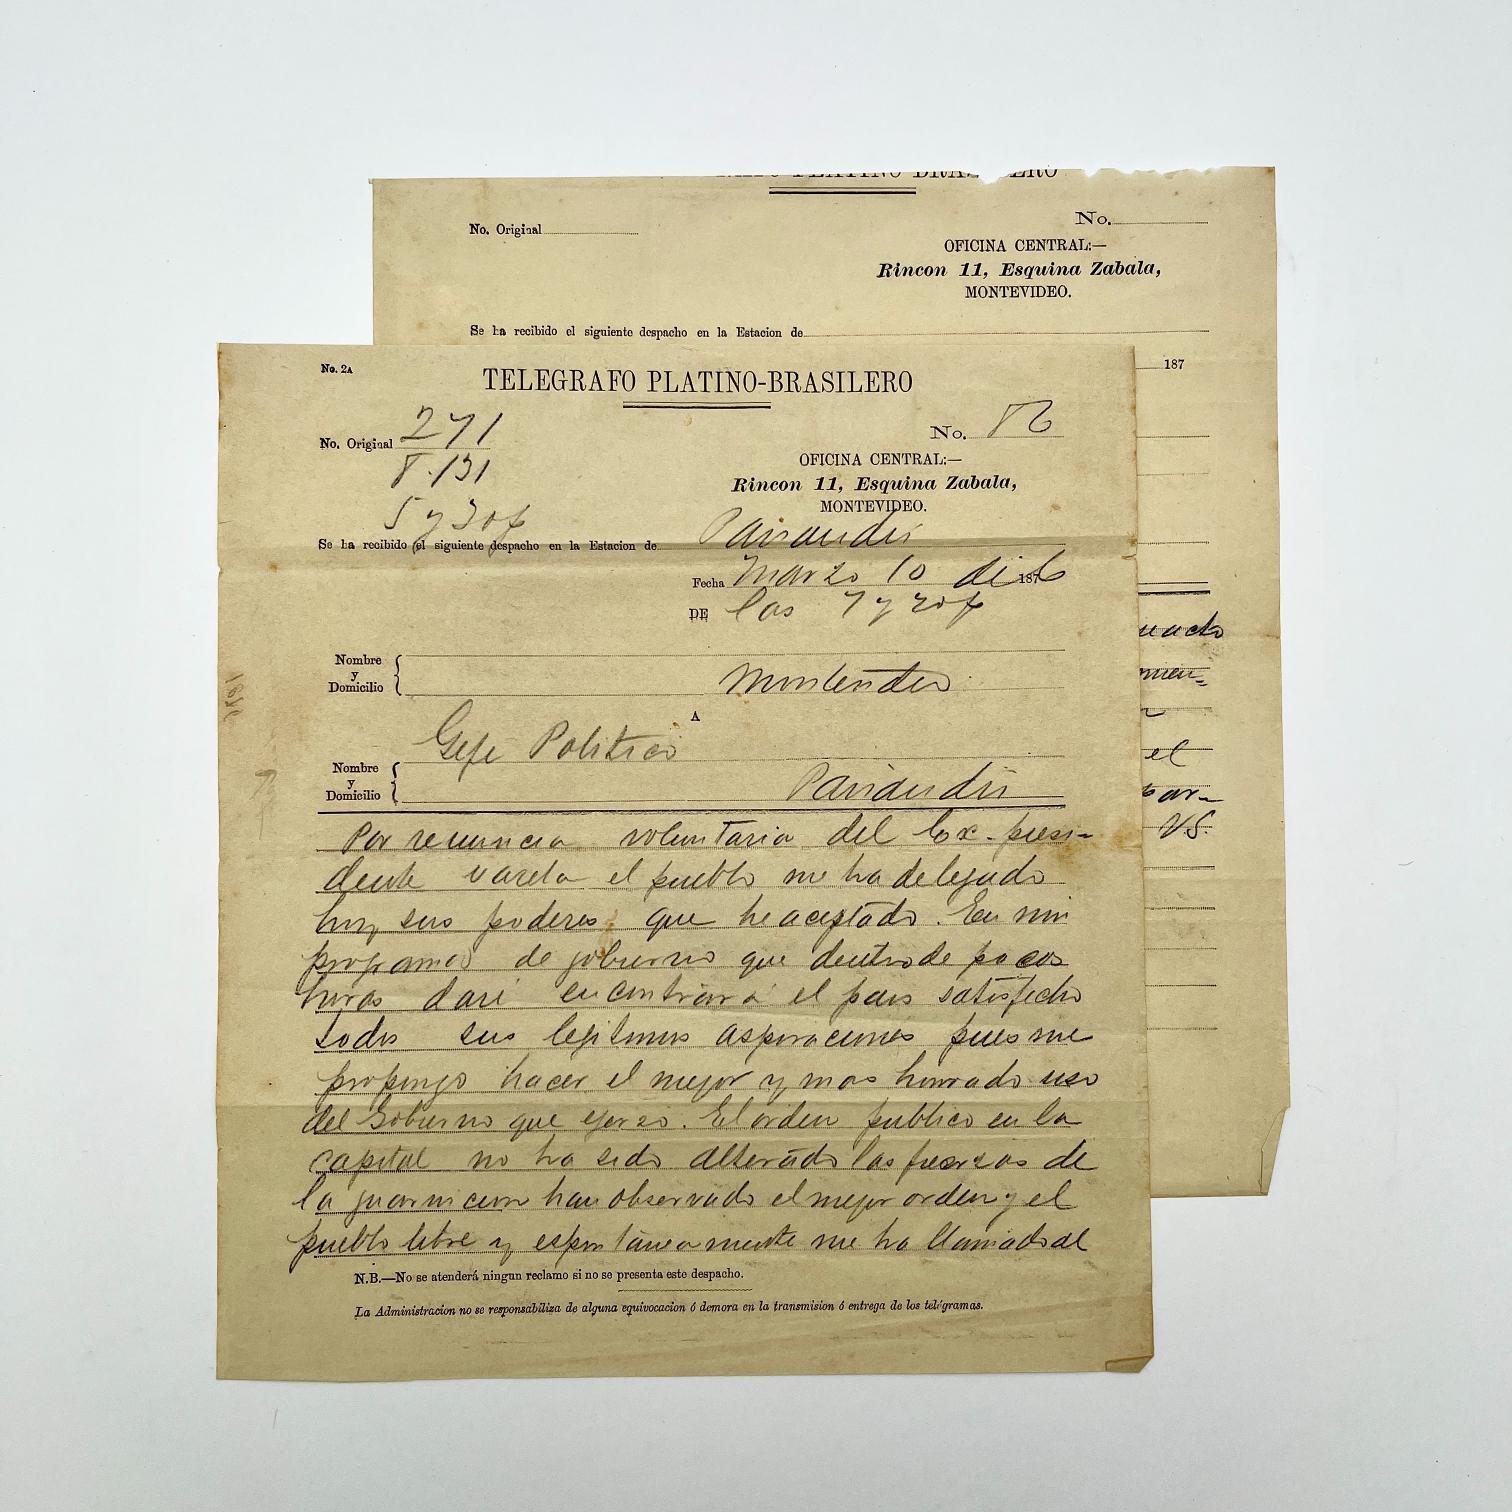 PLATINO BRAS ERO
No. Original
No.
OFICINA CENTRAL:—
Rincon 11, Esquina Zabala,
MONTEVIDEO.
Se ha recibido el siguiente despacho en la Estacion de
187
uacto
men-
el
par-
VS
No. 2A
TELEGRAFO PLATINO-BRASILERO
No. Original 271
8.131
5 y 30 p
No. 86
OFICINA CENTRAL:—
Rincon 11, Esquina Zabala,
MONTEVIDEO.
Se ha recibido el siguiente despacho en la Estacion de Paisandú
Fecha Marzo 10 de 1876
DE las 7 y 20 p
Nombre
y
Domicilio
Montevideo
A
Gefe Politico
Nombre
y
Domicilio
Paisandú
Por renuncia voluntaria del Ex-presi-
dente varela el pueblo me ha delegado
hoy sus poderes que he aceptado. En mi
programa de gobierno que dentro de pocas
horas daré encontrará el pais satisfecho
todas sus legitimas aspiraciones pues me
propongo hacer el mejor y mas honrado uso
del Gobierno que ejerzo. El orden publico en la
capital no ha sido alterado las fuerzas de
la guarnicion han observado el mejor orden y el
pueblo libre y espontaneamente me ha llamado al
N.B.—No se atenderá ningun reclamo si no se presenta este despacho.
La Administracion no se responsabiliza de alguna equivocacion ó demora en la transmision ó entrega de los telégramas.